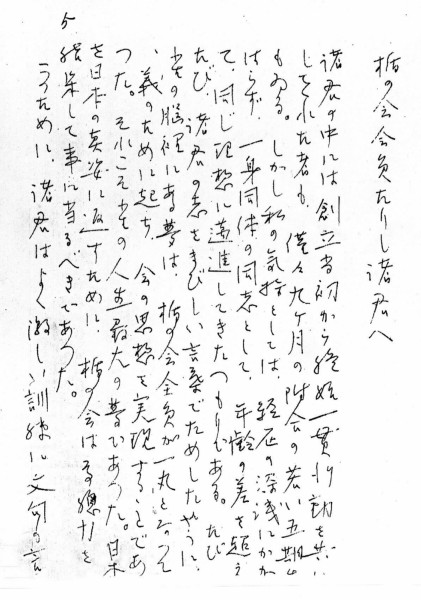 楯の会会員たりし諸君へ
諸君の中には創立当初から終始一貫行動を共に
してくれた者も、僅々九ヶ月の附合の若い五期生
もゐる。しかし私の気持としては、経歴の深浅にかか
はらず、一身同体の同志として、年齢の差を超え
て、同じ理想に邁進してきたつもりである。たび
たび、諸君の志をきびしい言葉でためしたやうに、
小生の脳裡にある夢は、楯の会全員が一丸となつて
、義のために起ち、会の思想を実現することであ
つた。それこそ小生の人生最大の夢であつた。日本
を日本の真姿に返すために、楯の会はその総力を
結集して事に当るべきであつた。
このために、諸君はよく激しい訓練に文句も言